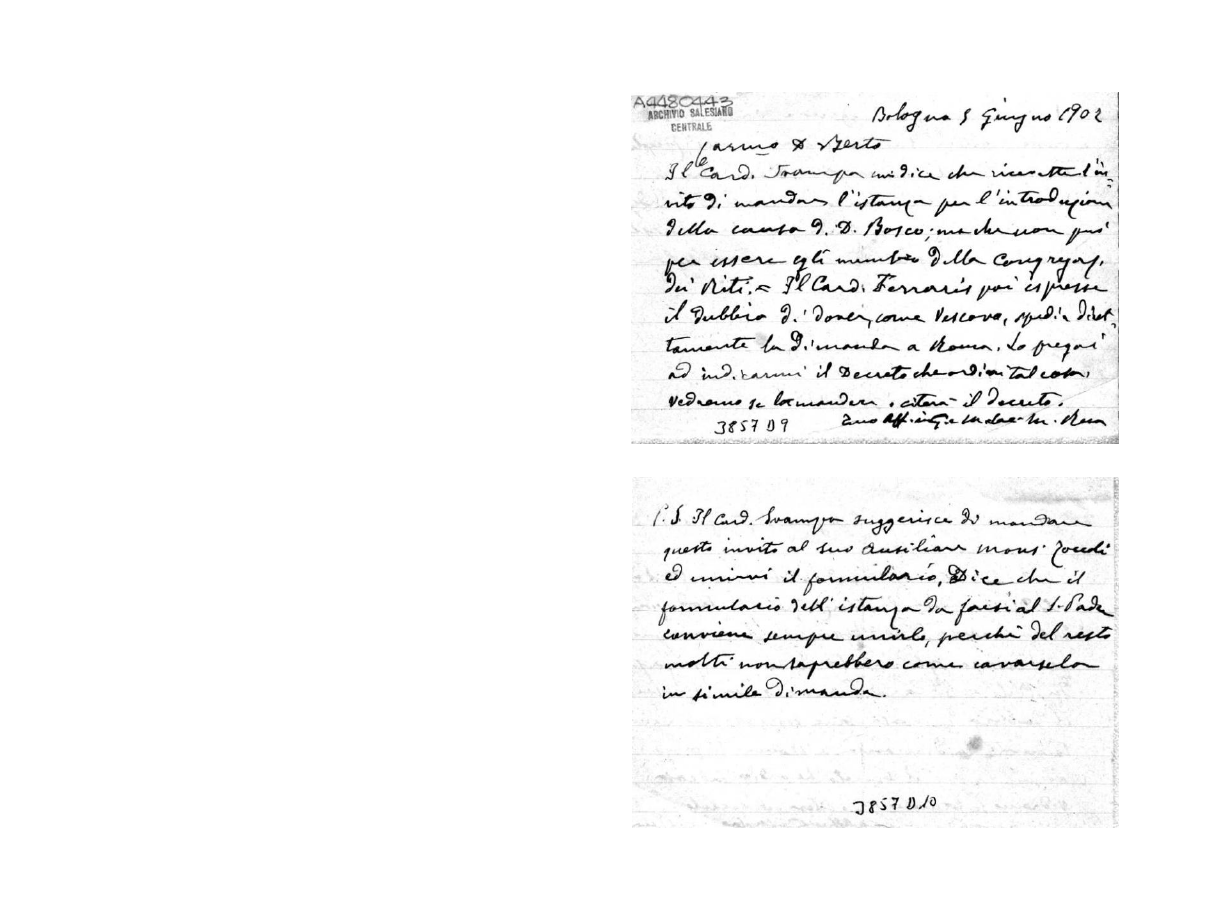 A4480443
ARCHIVIO SALESIANO
CENTRALE
Bologna 5 Giugno 1902
Carmo D Berto
Il Card. Svampa mi dice che ricevette l'in-
vito di mandare l'istanza per l'introduzione
della causa di D. Bosco; ma che non può
per essere egli membro della Congregaz.
dei Riti. = Il Card. Ferrari poi espresse
il dubbio di dover, come Vescovo, spedir diret-
tamente la dimanda a Roma. Lo pregai
ad indicarmi il Decreto che ordini tal cosa.
Vedremo se lo manderà o citerà il decreto.
Tuo aff. in G. e M. Rua
3857 D9
P.S. Il Card. Svampa suggerisce di mandare
questo invito al suo Ausiliare mons. Zoccoli
ed unirvi il formulario. Dice che il
formulario dell'istanza da farsi al S. Padre
conviene sempre unirlo, perchè del resto
molti non saprebbero come cavarsela
in simile dimanda.
3857 D10